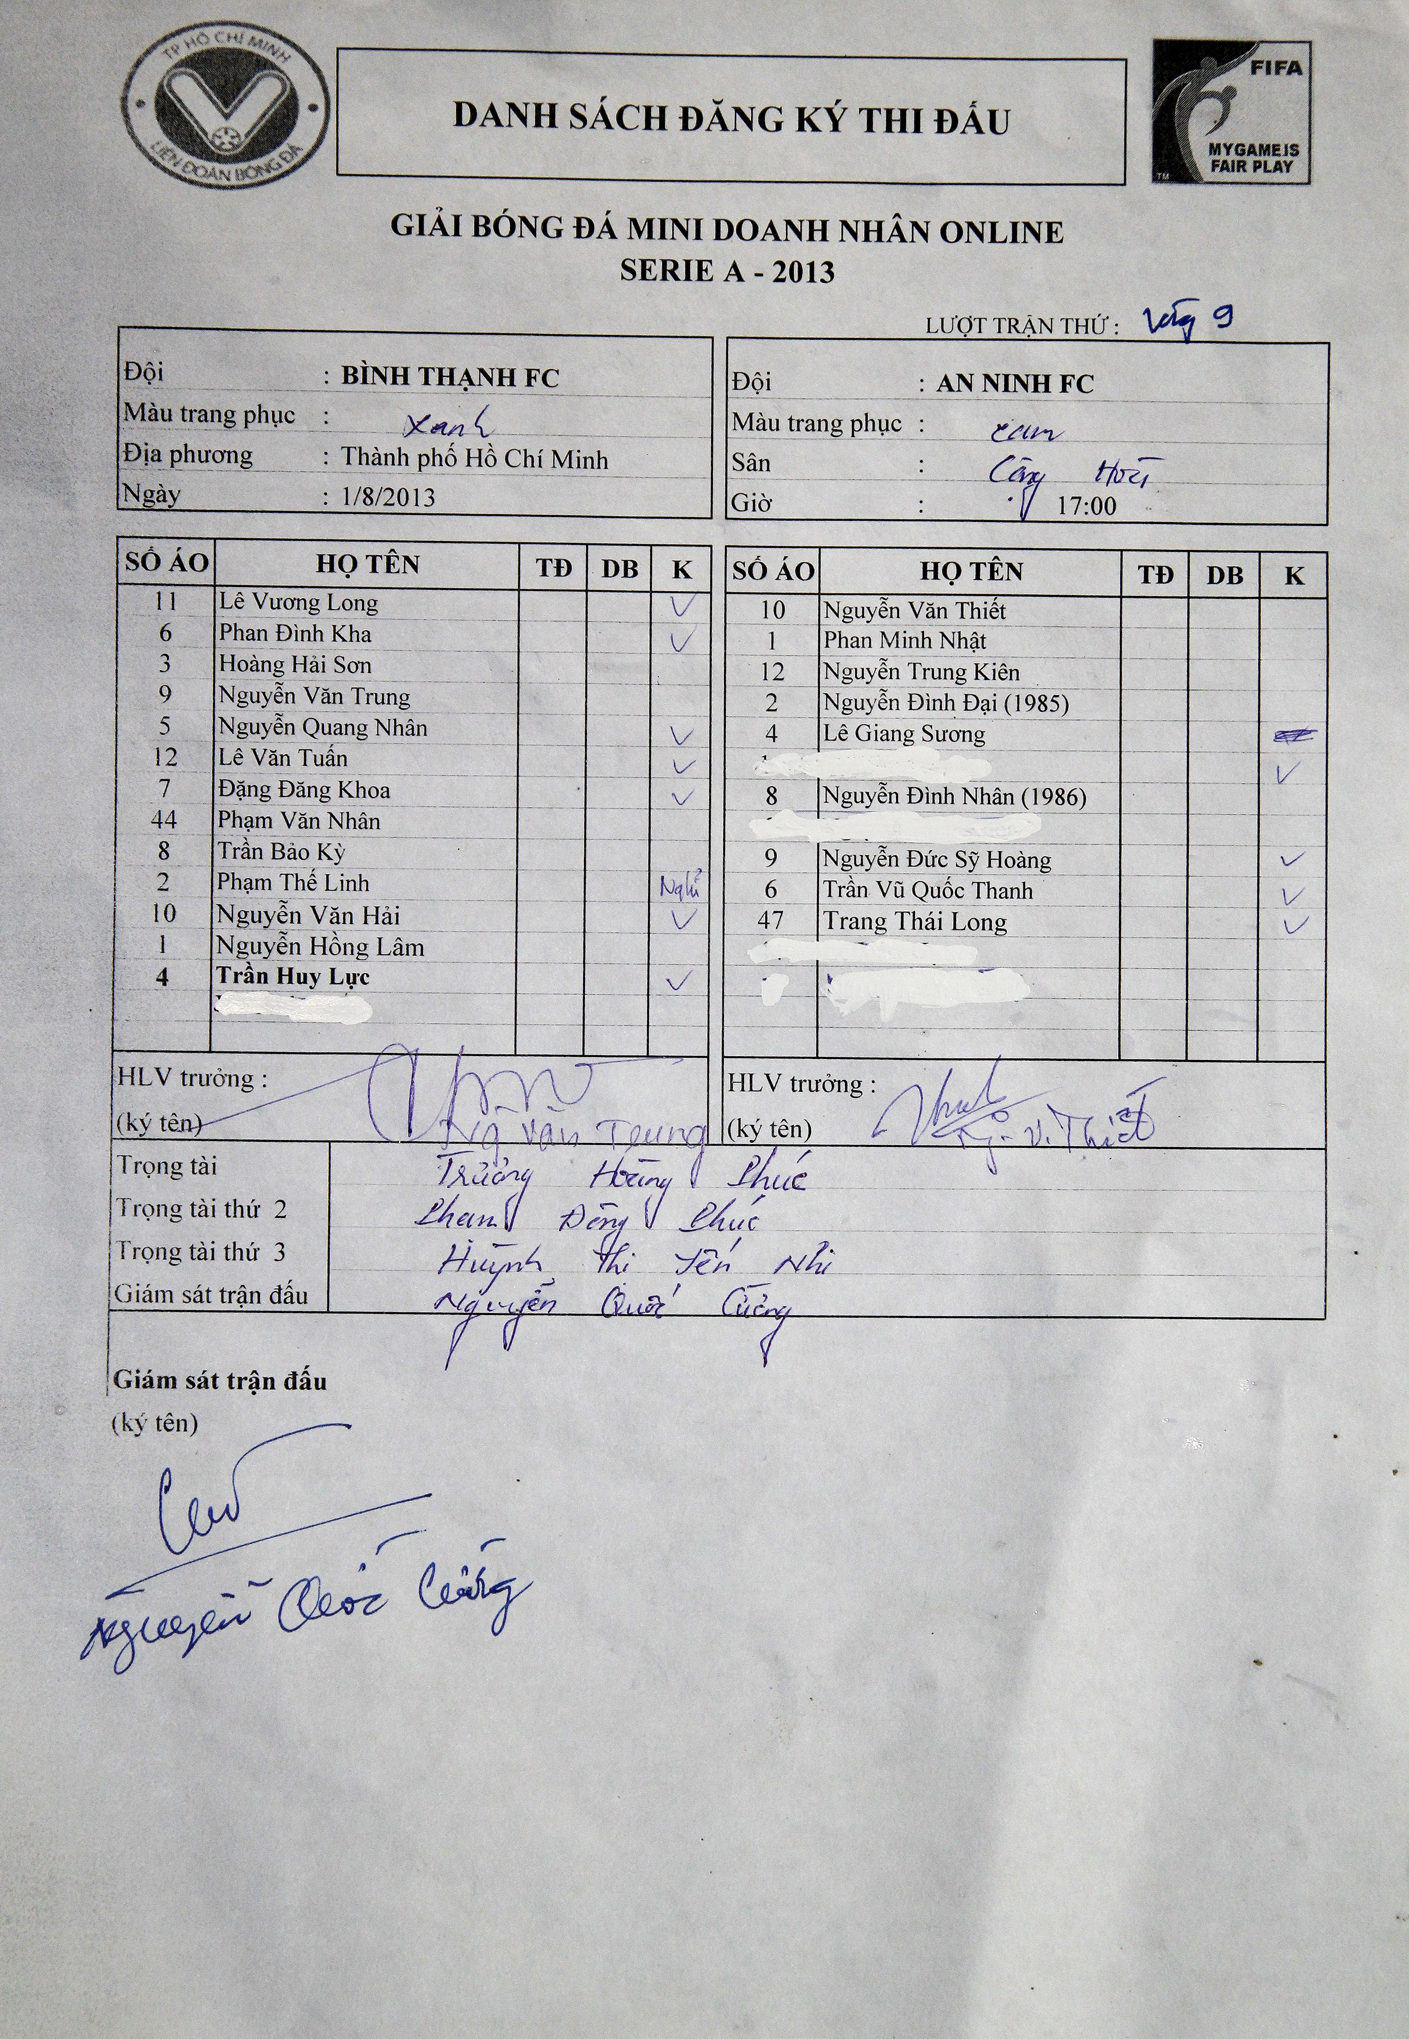 TP HỒ CHÍ MINH
LIÊN ĐOÀN BÓNG ĐÁ
DANH SÁCH ĐĂNG KÝ THI ĐẤU
FIFA
MY GAME IS
FAIR PLAY
TM
GIẢI BÓNG ĐÁ MINI DOANH NHÂN ONLINE
SERIE A - 2013
LƯỢT TRẬN THỨ : Vòng 9
Đội : BÌNH THẠNH FC
Màu trang phục : Xanh
Địa phương : Thành phố Hồ Chí Minh
Ngày : 1/8/2013
Đội : AN NINH FC
Màu trang phục : cam
Sân :
Giờ : 17:00
SỐ ÁO HỌ TÊN TĐ DB K
11 Lê Vương Long ✓
6 Phan Đình Kha ✓
3 Hoàng Hải Sơn
9 Nguyễn Văn Trung
5 Nguyễn Quang Nhân ✓
12 Lê Văn Tuấn ✓
7 Đặng Đăng Khoa ✓
44 Phạm Văn Nhân
8 Trần Bảo Kỳ
2 Phạm Thế Linh Nghỉ
10 Nguyễn Văn Hải ✓
1 Nguyễn Hồng Lâm
4 Trần Huy Lực ✓
SỐ ÁO HỌ TÊN TĐ DB K
10 Nguyễn Văn Thiết
1 Phan Minh Nhật
12 Nguyễn Trung Kiên
2 Nguyễn Đình Đại (1985)
4 Lê Giang Sương
✓
8 Nguyễn Đình Nhân (1986)
9 Nguyễn Đức Sỹ Hoàng ✓
6 Trần Vũ Quốc Thanh ✓
47 Trang Thái Long ✓
HLV trưởng :
(ký tên)
Ng Văn Trung
HLV trưởng :
(ký tên)
Ng. V. Thiết
Trọng tài Trương Hoàng Phúc
Trọng tài thứ 2 Phạm Đông Phúc
Trọng tài thứ 3 Huỳnh Thị Yến Nhi
Giám sát trận đấu Nguyễn Quốc Cường
Giám sát trận đấu
(ký tên)
Nguyễn Quốc Cường